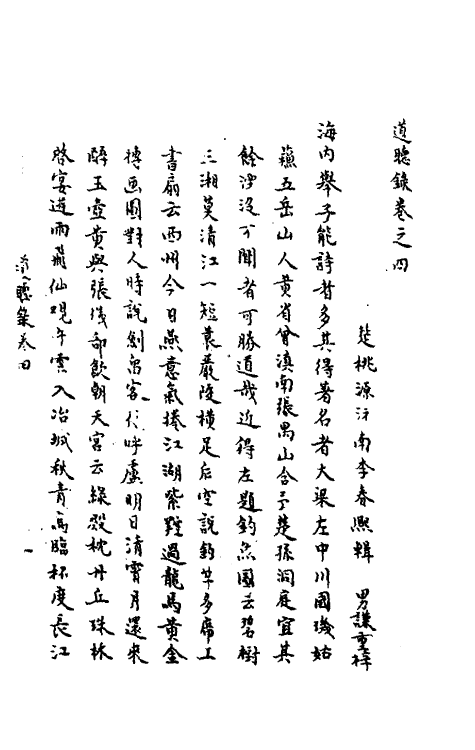 道聽錄卷之四
楚桃源沅南李春熙輯 男謙重梓
海内舉子能詩者多其得著名者大梁左中川國璣姑
蘇五岳山人黄省曾滇南張禺山含予楚孫洞庭宜其
餘浮沒不聞者可勝道哉近得左題釣魚圖云碧樹
三湘莫清江一短蓑嚴陵横足后空說釣竿多席工
書扇云西州今日燕意氣捲江湖紫難過龍馬黄金
摶画圖對人時說劍留客仍呼盧明日清霄月還來
醉玉壺黄與張幾部飲朝天宫云綠殿枕丹丘珠林
啓宴遊雨飛仙觀午雲入冶城秋青為臨杯度長江
道聽錄卷四 一